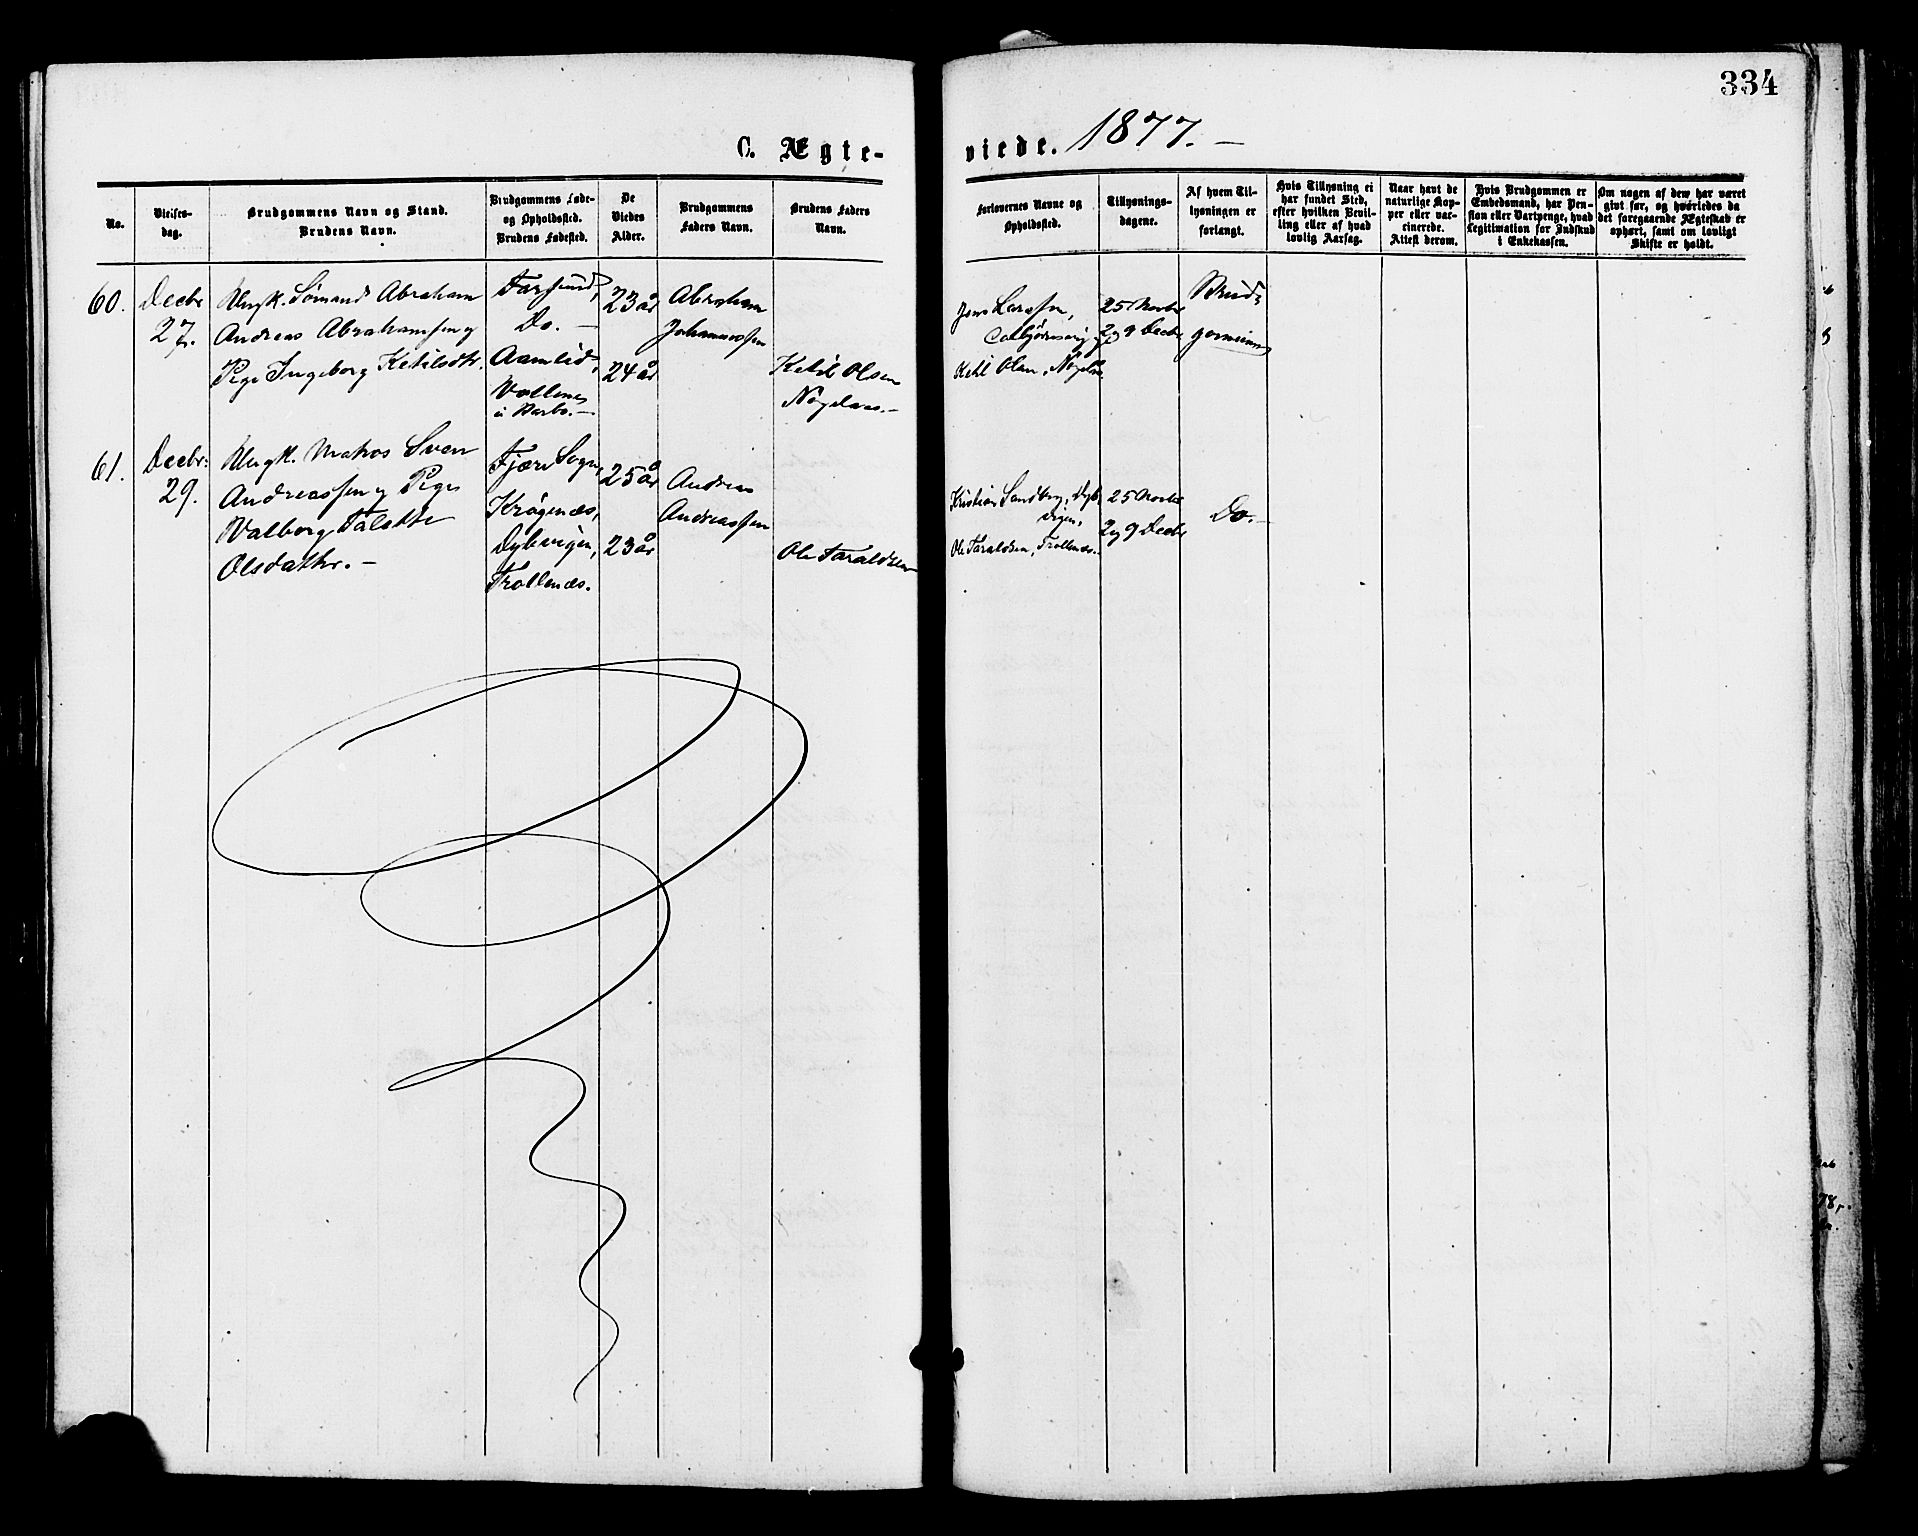 334
C. Ægte-
viede. 1877. –
No.
Vielses-
dag.
Brudgommens Navn og Stand.
Brudens Navn.
Brudgommens Føde-
og Opholdssted.
Brudens Fødested.
De
Viedes
Alder.
Brudgommens
Faders Navn.
Brudens Faders
Navn.
Forlovernes Navne og
Opholdssted.
Tillysnings-
dagene.
Af hvem Til-
lysningen er
forlangt.
Hvis Tillysning ei
har fundet Sted,
efter hvilken Bevil-
ling eller af hvad
lovlig Aarsag.
Naar havt de
naturlige Kop-
per eller vac-
cinerede.
Attest derom.
Hvis Brudgommen er
Embedsmand, har Pen-
sion eller Vartpenge, hvad
Legitimation for Indskud
i Enkekassen.
Om nogen af dem har været
gift før, og hvorledes da
det foregaaende Ægteskab er
ophørt, samt om lovligt
Skifte er holdt.
60.
Decbr
27.
Ungk. Sømand Abraham
Andreas Abrahamsen og
Pige Ingeborg Ketilsdtr.
Farsund,
Do. –
Aamlid,
Vollenes
i Barbo. –
23 år
24 år
Abraham
Johannessen
Ketil Olsen
Jens Larssen,
Ketil Olsen,
25 Novbr
2 og 9 Decbr
Brud-
gommen
61.
Decbr:
29.
Ungk. Matros Sven
Andreassen og Pige
Valborg
Olsdatter. –
Fjære Sogn,
Krøgenæs,
Dybvigen,
Trollenæs.
25 år
23 år
Andreas
Andreassen
Ole Taraldsen
Kristian Sandberg, Dyb-
vigen,
Ole Taraldsen, Trollenæs.
25 Novbr
2 og 9 Decbr
Do. –